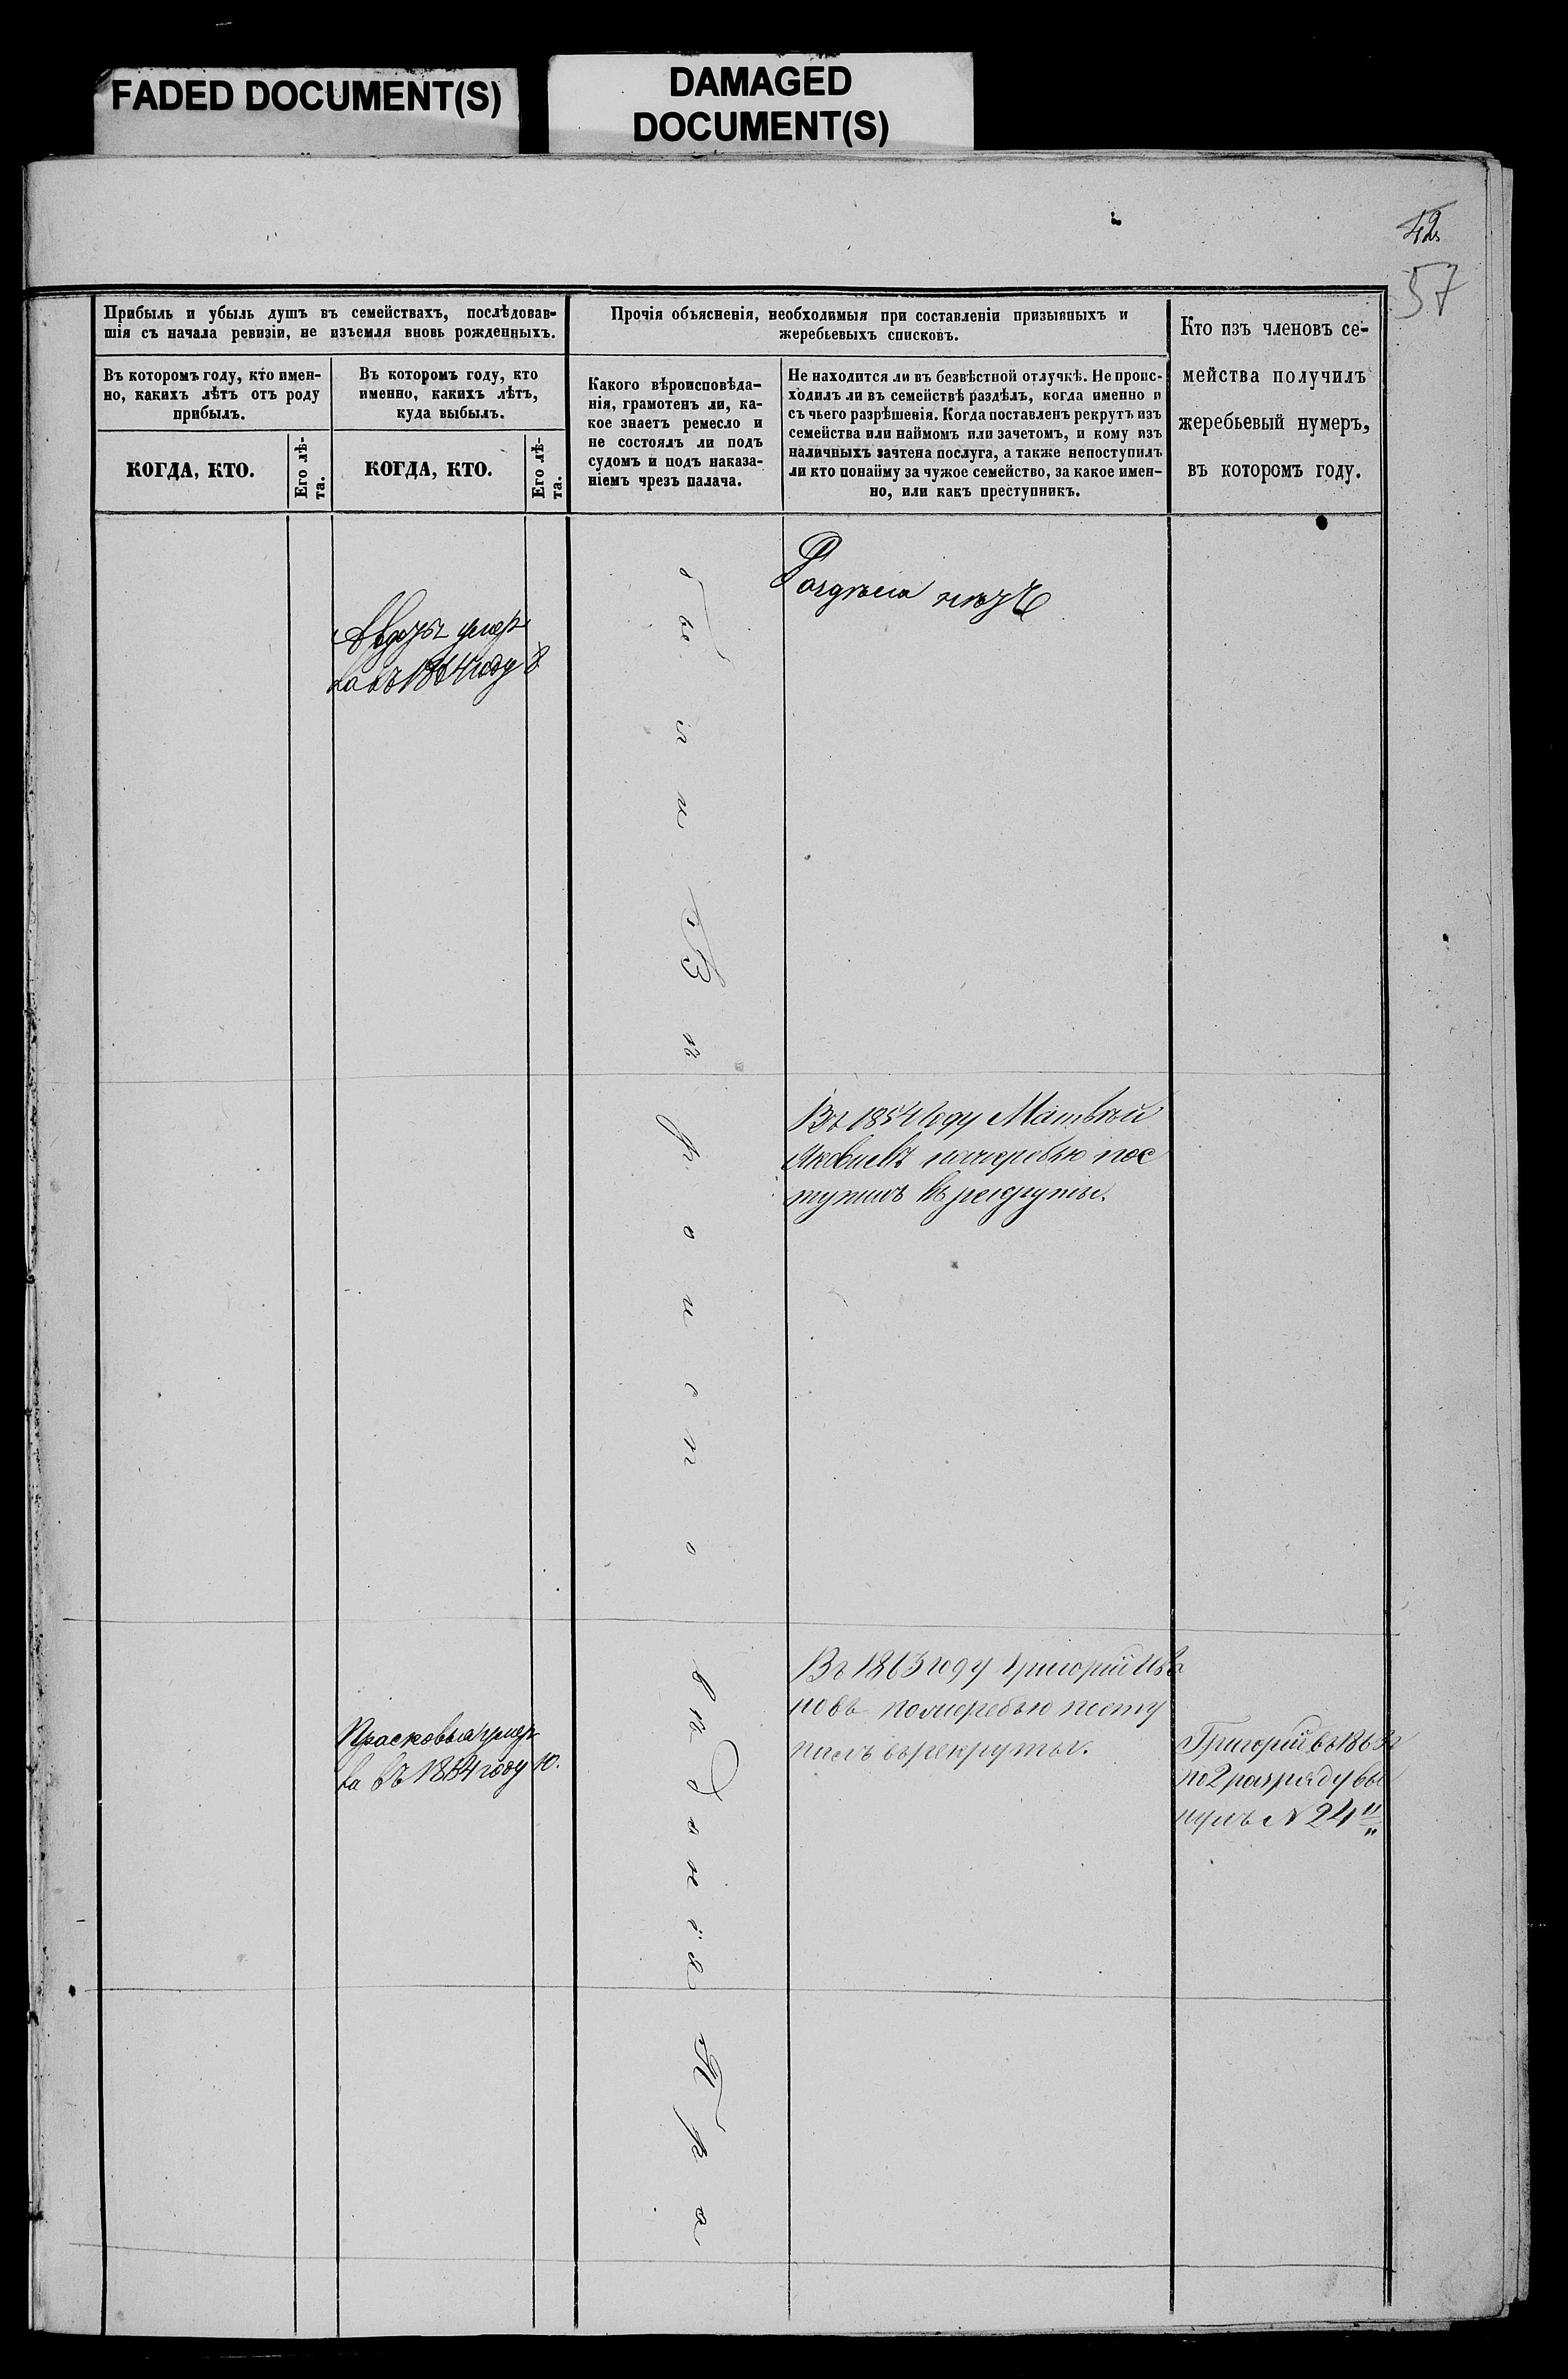 FADED DOCUMENT(S)
DAMAGED
DOCUMENT(S)
42
57
Прибыль и убыль душъ въ семействахъ, послѣдовав-
шія съ начала ревизіи, не изъемля вновь рожденныхъ.
Въ которомъ году, кто имен-
но, какихъ лѣтъ отъ роду
прибылъ.
КОГДА, КТО.
Его лѣ-
та.
Въ которомъ году, кто
именно, какихъ лѣтъ,
куда выбылъ.
КОГДА, КТО.
Его лѣ-
та.
Прочія объясненія, необходимыя при составленіи призывныхъ и
жеребьевыхъ списковъ.
Какого вѣроисповѣда-
нія, грамотенъ ли, ка-
кое знаетъ ремесло и
не состоялъ ли подъ
судомъ и подъ наказа-
ніемъ чрезъ палача.
Не находится ли въ безвѣстной отлучкѣ. Не проис-
ходилъ ли въ семействѣ раздѣлъ, когда именно и
съ чьего разрѣшенія. Когда поставленъ рекрутъ изъ
семейства или наймомъ или зачетомъ, и кому изъ
наличныхъ зачтена послуга, а также непоступилъ
ли кто понайму за чужое семейство, за какое имен-
но, или какъ преступникъ.
Кто изъ членовъ се-
мейства получилъ
жеребьевый нумеръ,
въ которомъ году.
умер
ла въ 1864 году 8
Въ 1854 году Матвѣй
Яковлевъ пожеребью пос
тупилъ въ рекруты.
Въ 1863 году Григорій Ива
новъ пожеребью посту
пилъ въ рекруты.
Прасковья умер
ла въ 1854 году 10.
Григорій въ 1863 г
по 2 разряду вы
нулъ № 24
вѣроисповѣданія Пра